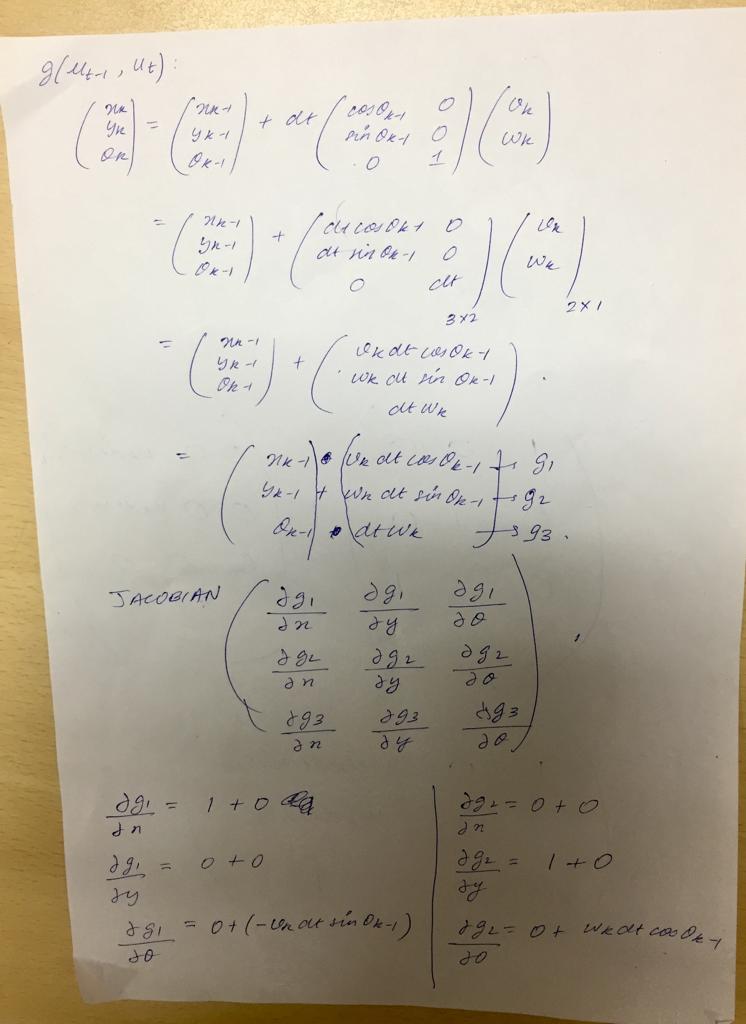 g(μt-1, ut):
(xk yk θk) = (xk-1 yk-1 θk-1) + dt (cosθk-1 0 sinθk-1 0 0 1) (vk ωk)
= (xk-1 yk-1 θk-1) + (dt cosθk-1 0 dt sinθk-1 0 0 dt) 3×2 (vk ωk) 2×1
= (xk-1 yk-1 θk-1) + (vk dt cosθk-1 ωk dt sinθk-1 dt ωk).
= (xk-1 + vk dt cosθk-1) → g1
yk-1 + ωk dt sinθk-1 → g2
θk-1 + dt ωk → g3.
JACOBIAN
∂g1/∂x ∂g1/∂y ∂g1/∂θ
∂g2/∂x ∂g2/∂y ∂g2/∂θ
∂g3/∂x ∂g3/∂y ∂g3/∂θ
∂g1/∂x = 1 + 0
∂g1/∂y = 0 + 0
∂g1/∂θ = 0 + (-vk dt sinθk-1)
∂g2/∂x = 0 + 0
∂g2/∂y = 1 + 0
∂g2/∂θ = 0 + ωk dt cosθk-1